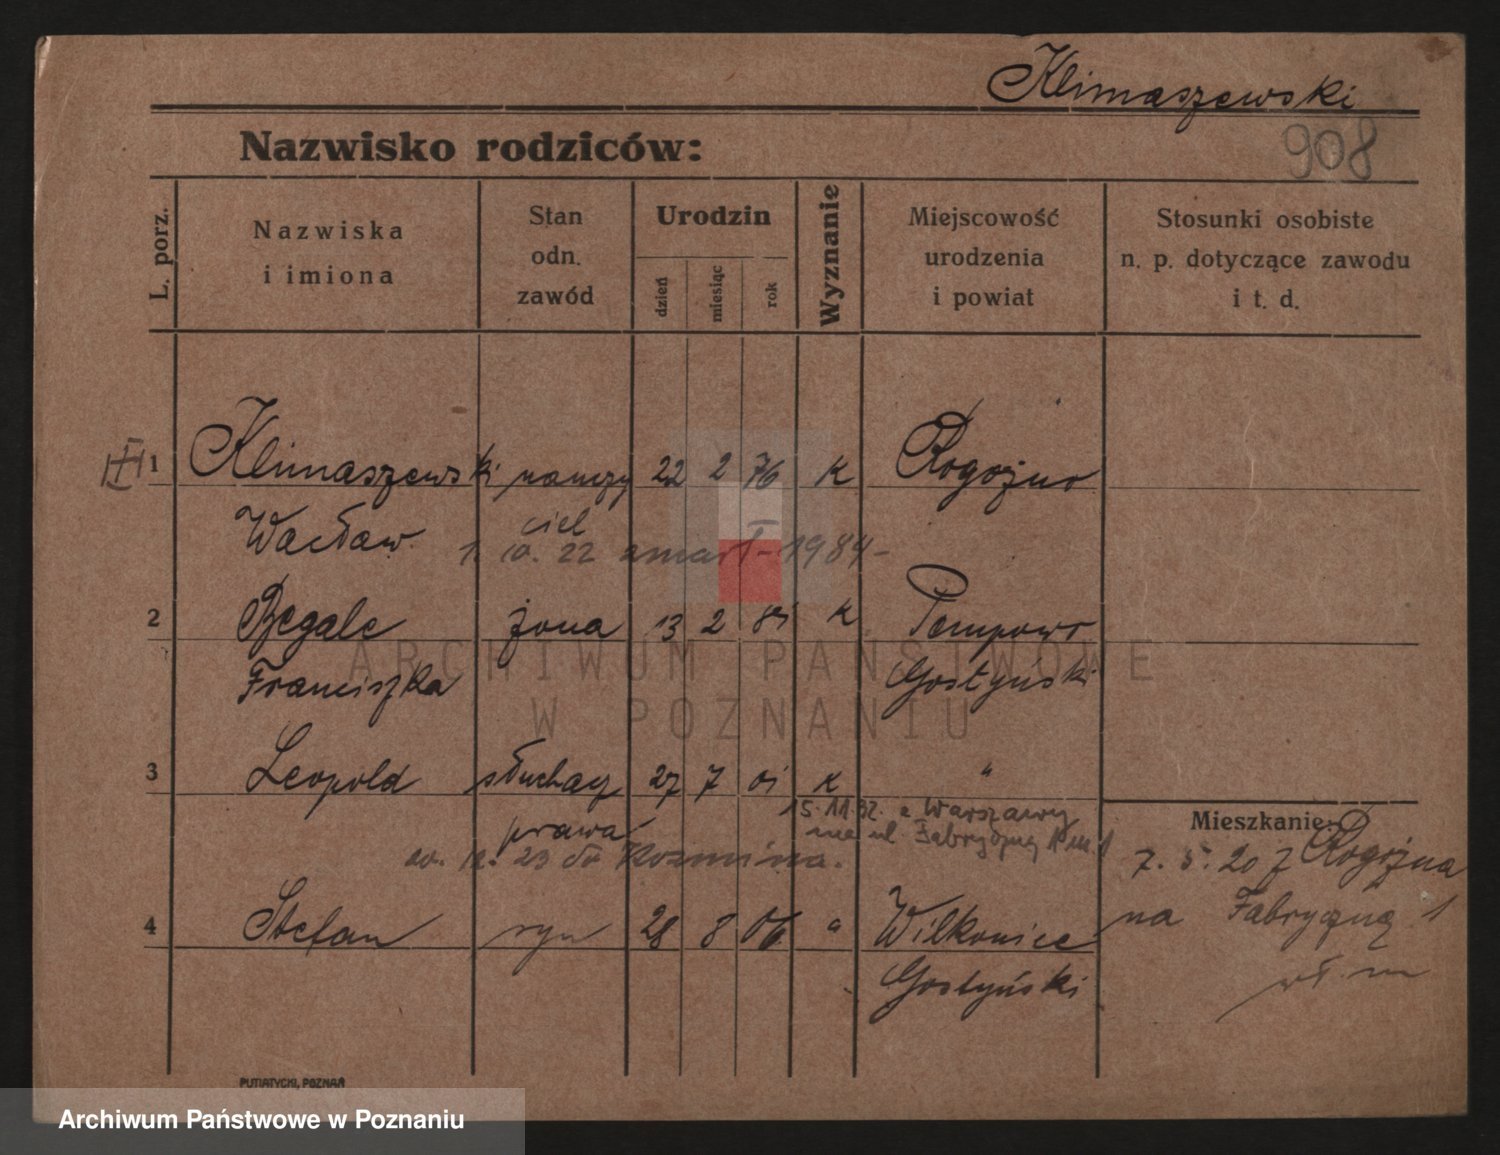 Klimaszewski
908
Nazwisko rodziców:
L. porz.
Nazwiska
i imiona
Stan
odn.
zawód
Urodzin
dzień
miesiąc
rok
Wyznanie
Miejscowość
urodzenia
i powiat
Stosunki osobiste
n. p. dotyczące zawodu
i t. d.
1 Klimaszewski nauczy 22 2 76 k Rogoźno
Wacław ciel
1. 10. 22 zmarł
2 Begale żona 13 2 k Pempowo
Franciszka Gostyński
3 Leopold słuchacz 27 7 01 k "
prawa
15.11.32. z Warszawy
na ul. Fabryczną 1 m 1
12. 23 do Koźmina.
4 Stefan syn 28 8 06 " Wilkonice
Gostyński
Mieszkanie:
7. 5. 20 z Rogoźna
na Fabryczną 1
wł. m
PUTIATYCKI, POZNAŃ
ARCHIWUM PAŃSTWOWE
W POZNANIU
Archiwum Państwowe w Poznaniu